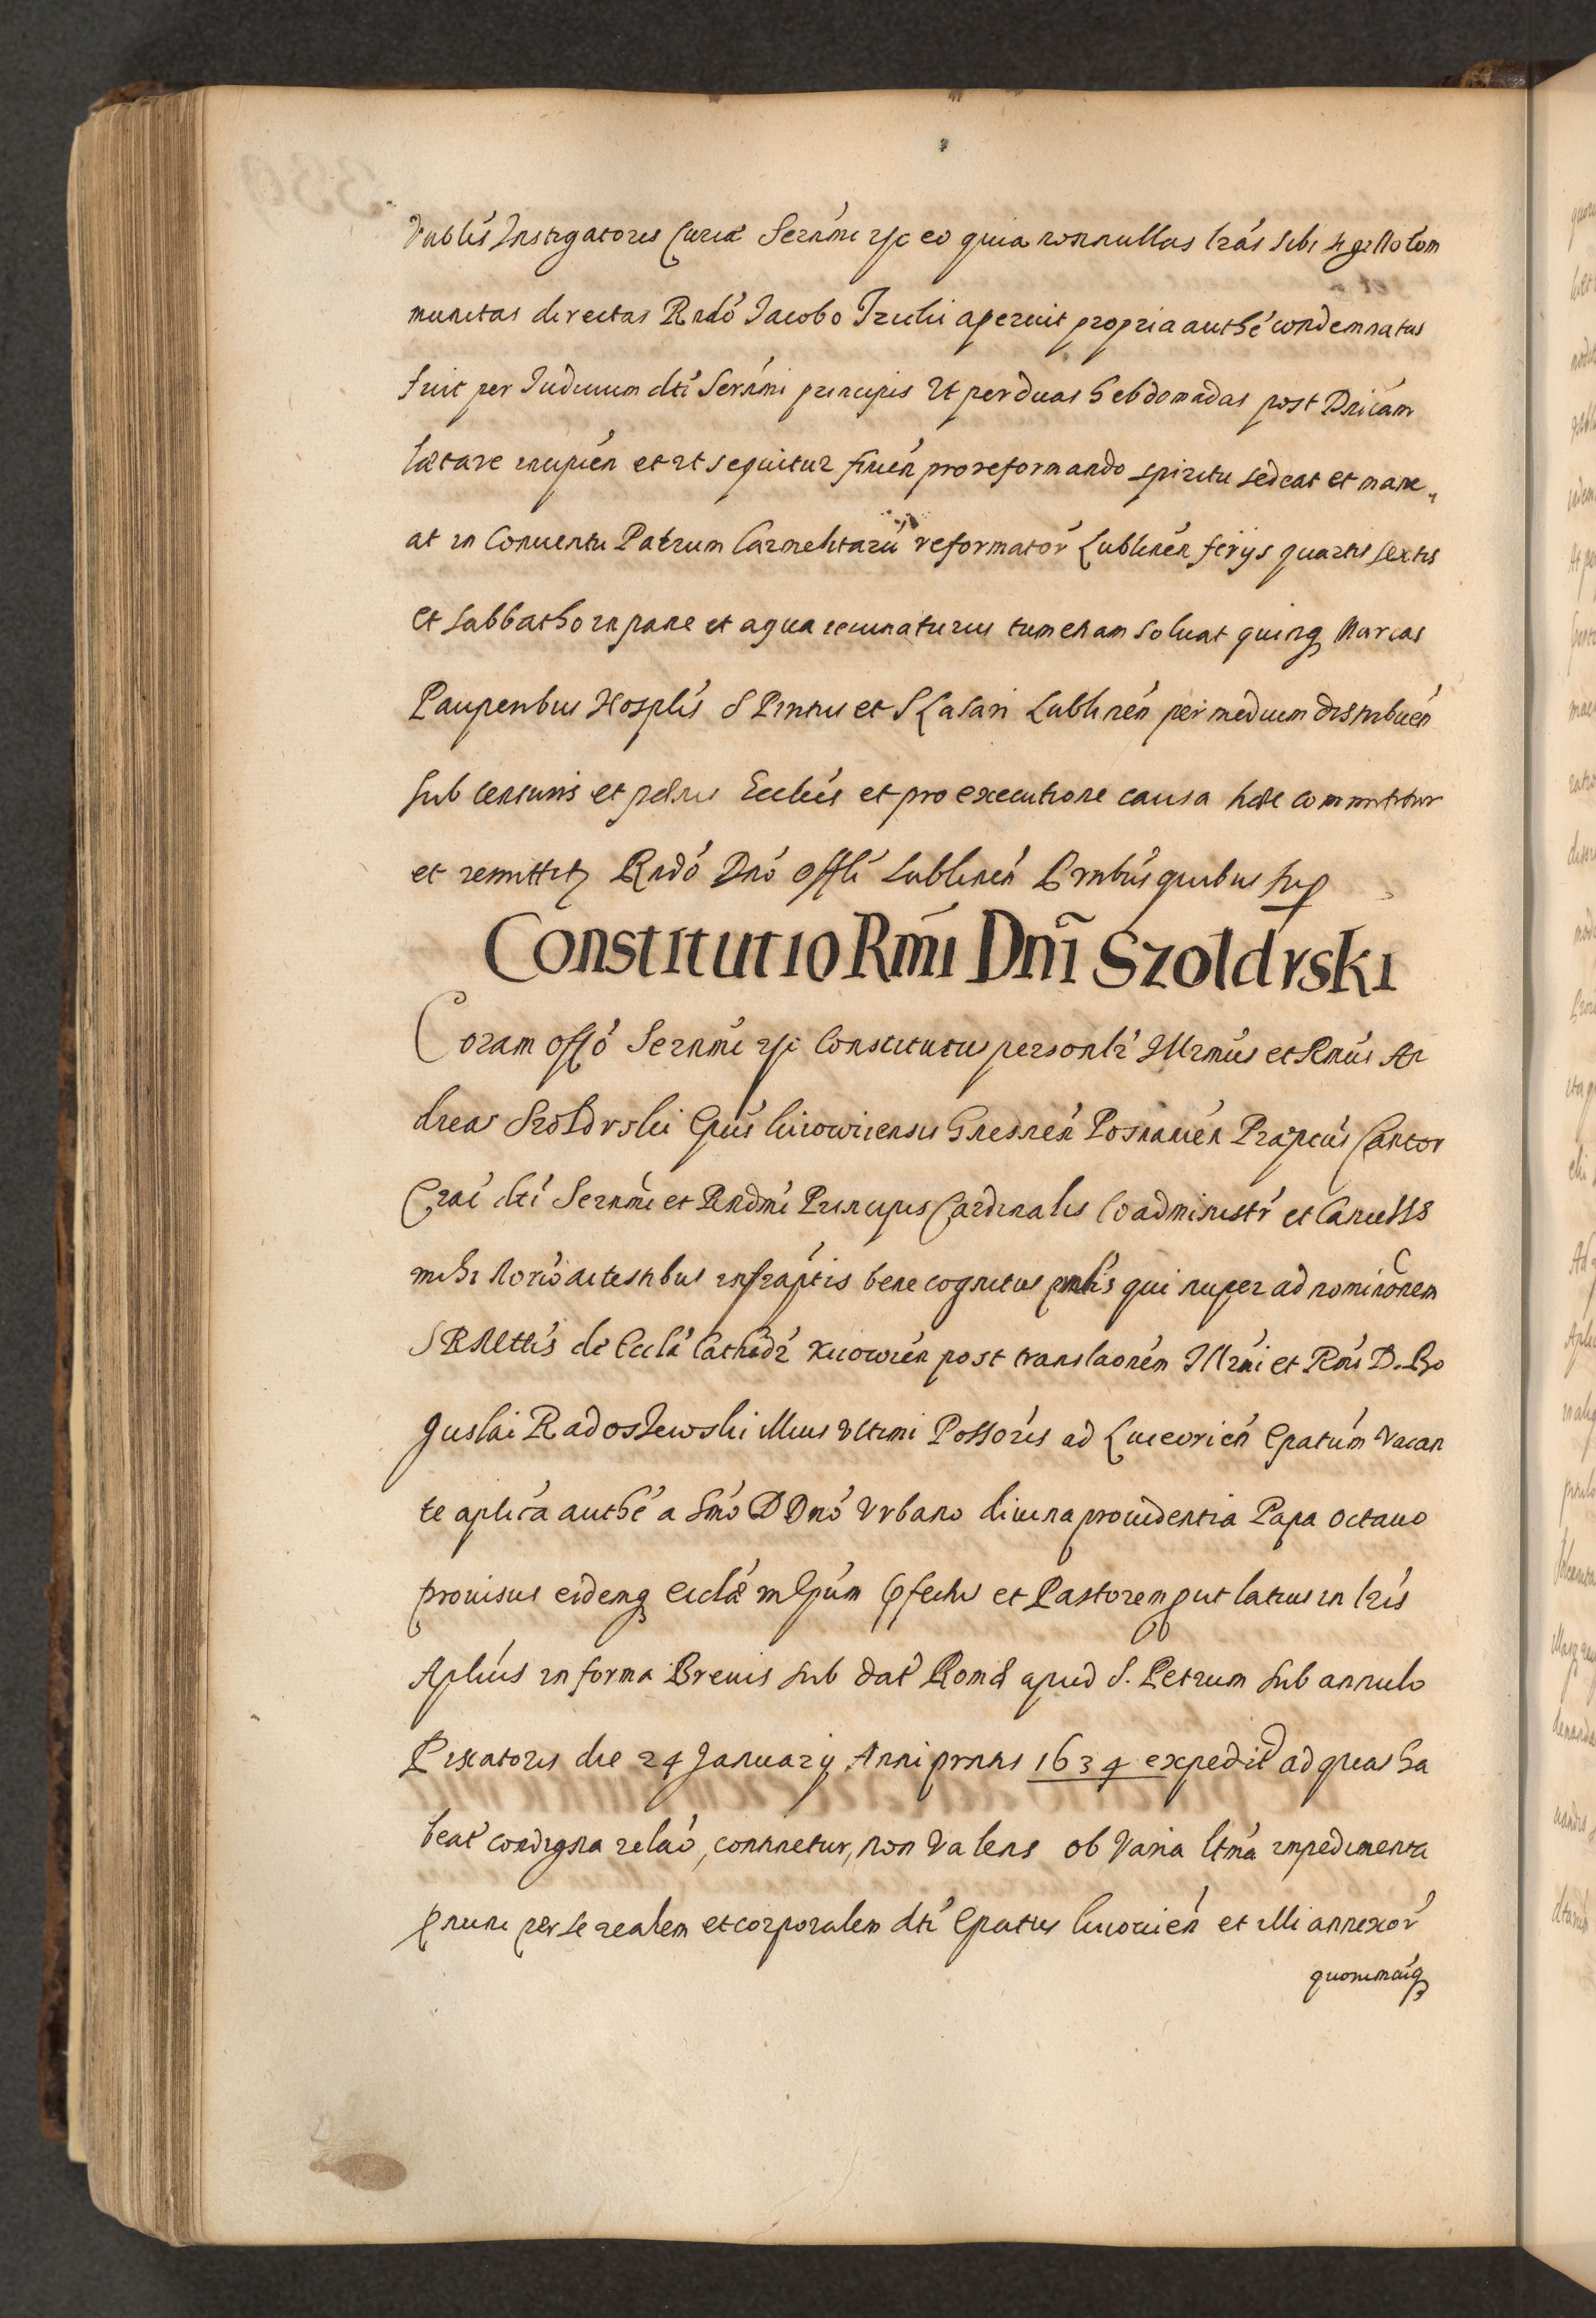 Instigatoris Curiæ Serńmi etc eo quia nonnullas lrás sibi
munitas directas Rndó Jacobo aperuit propria authé condemnatus
fuit per Judicium dti Serńmi principis Ut per duas hebdomadas post Dnicám
lætare incipień et ut sequitur finień pro reformando spiritu sedeat et mane„
at in Conuentu Patrum Carmelitarú reformatór Lublinén ferijs quartis sextis
et Sabbatho in pane et aqua ieiunaturus tum etiam soluat quinq Marcas
Pauperibus Hosplís S Spiritus et S Lasari Lublinén per medium distribuén
sub censuris et pœnis Ecclćis et pro executione causa hæc committitur
et remittitr Rndó Dnó Offli Lublinén Prntibús quibus sup
Constitutio Rmi Dni Szoldrski
Coram offó Serńmi etc Constitutus personlr Illrmús et Rmús An
dreas Szoldrski Epús kiiowiensis Gnesnén Posnanién Præptús Cantor
Crać dti Serńmi et Rndmi Principis Cardinalis Coadministr et Cancells
mihi Norió ac testibus infraptis bene cognitus qui nuper ad nominónem
S R Mttis de Ecclá Cathedr Kiiowién post translaónem Illrmi et Rmi D. Bo
guslai Radoszewski illius Ultimi Possorís ad Luceorién Epatúm Vacan
te aplicá authé a Smó D Dnó Urbano diuina prouidentia Papa Octauo
prouisus eidemq Ecclæ in Epúm pfectus et Pastorem put latius in lris
Aplićis in forma Breuis sub dat Romæ apud S. Petrum sub annulo
Piscatoris die 24 Januarij Anni prntis 1634 expedit ad quas ha
beat condigna relaó, continetur, non Valens ob Varia ltmá impedimenta
pnunc per se realem et corporalem dti Epatus kiiouién et illi annexór
quorumcúq